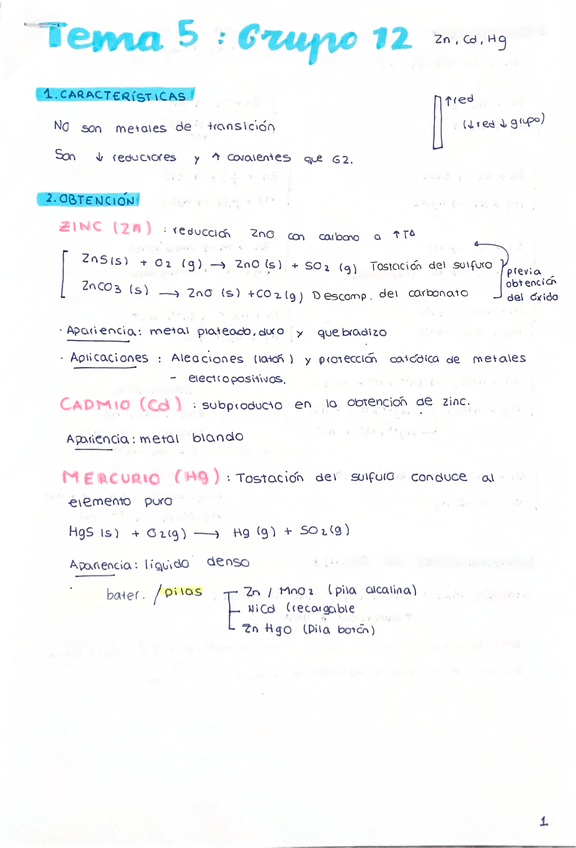 Tema 5 : Grupo 12 Zn, Cd, Hg
1. CARACTERÍSTICAS
↑red
(↓red ↓grupo)
No son metales de transición
Son ↓ reductores y ↑ covalentes que G2.
2. OBTENCIÓN
ZINC (Zn) : reducción ZnO con carbono a ↑Tª
ZnS(s) + O2 (g) → ZnO(s) + SO2 (g) Tostación del sulfuro
ZnCO3 (s) → ZnO (s) + CO2(g) Descomp. del carbonato
previa
obtención
del óxido
· Apariencia: metal plateado, duro y quebradizo
· Aplicaciones : Aleaciones (latón) y protección catódica de metales
- electropositivos.
CADMIO (Cd) : subproducto en la obtención de zinc.
Apariencia: metal blando
MERCURIO (Hg) : Tostación del sulfuro conduce al
elemento puro
HgS (s) + O2(g) → Hg (g) + SO2(g)
Apariencia: líquido denso
· bater. / pilas
Zn / MnO2 (pila alcalina)
NiCd (recargable
Zn HgO (Pila botón)
1